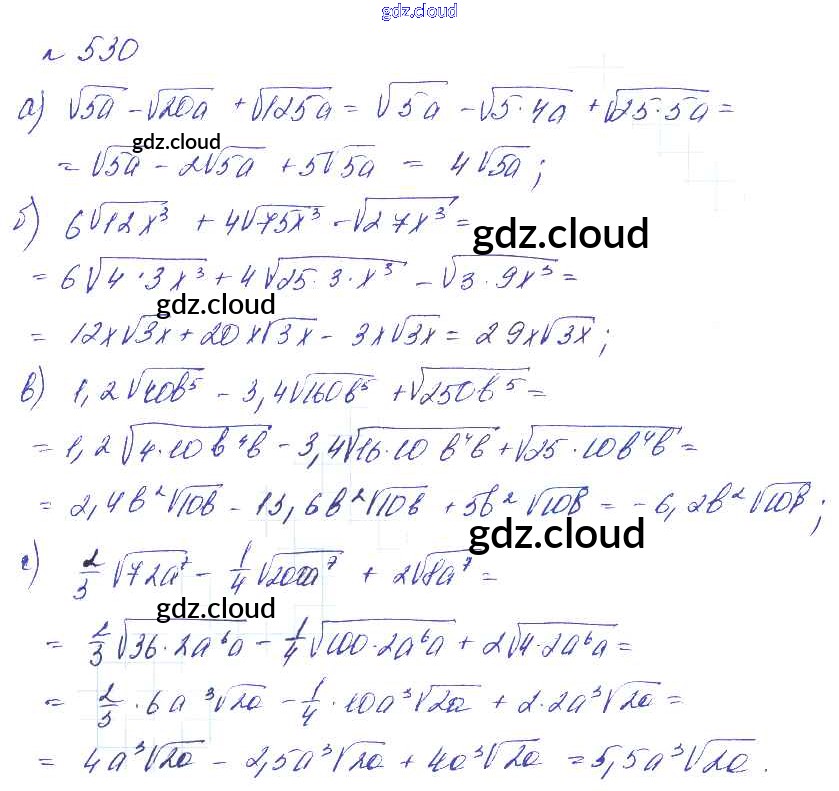 gdz.cloud
№ 530
а) √5a − √20a + √125a = √5a − √5·4a + √25·5a =
gdz.cloud
= √5a − 2√5a + 5√5a = 4√5a;
б) 6√12x³ + 4√75x³ − √27x³ =
gdz.cloud
= 6√4·3x³ + 4√25·3·x³ − √3·9x³ =
gdz.cloud
= 12x√3x + 20x√3x − 3x√3x = 29x√3x;
в) 1,2√40b⁵ − 3,4√160b⁵ + √250b⁵ =
= 1,2√4·10b⁴b − 3,4√16·10b⁴b + √25·10b⁴b =
= 2,4b²√10b − 13,6b²√10b + 5b²√10b = −6,2b²√10b;
gdz.cloud
г) 2/3√72a⁷ − 1/4√200a⁷ + 2√8a⁷ =
gdz.cloud
= 2/3√36·2a⁶a − 1/4√100·2a⁶a + 2√4·2a⁶a =
= 2/3·6a³√2a − 1/4·10a³√2a + 2·2a³√2a =
= 4a³√2a − 2,5a³√2a + 4a³√2a = 5,5a³√2a.